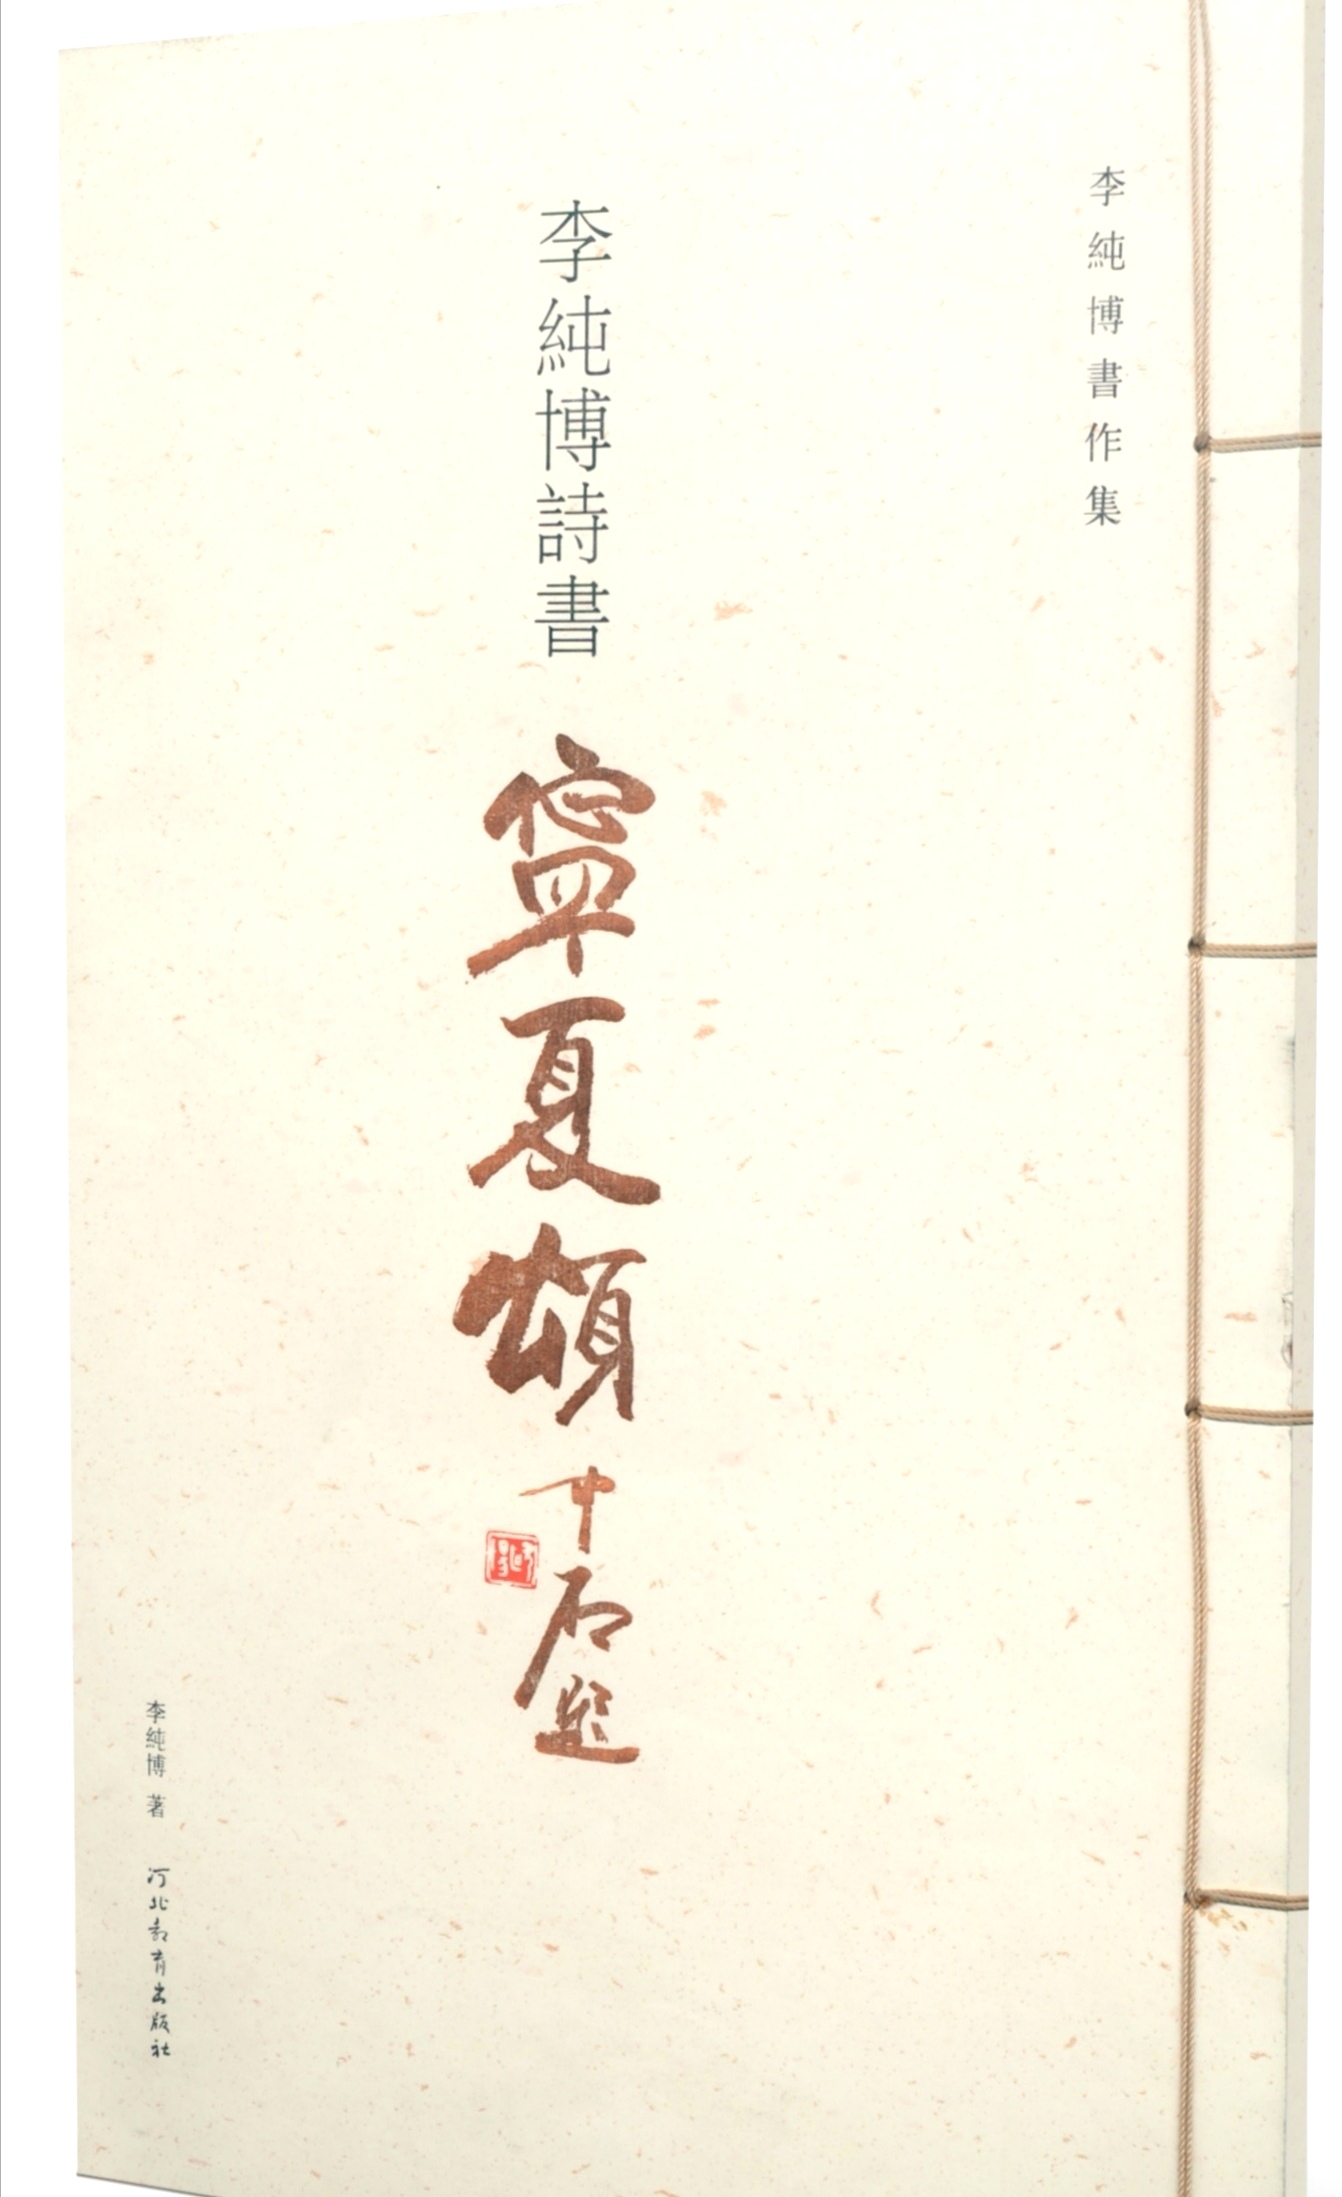 李純博書作集
李純博詩書
寧夏頌
中石題
李純博 著
河北教育出版社